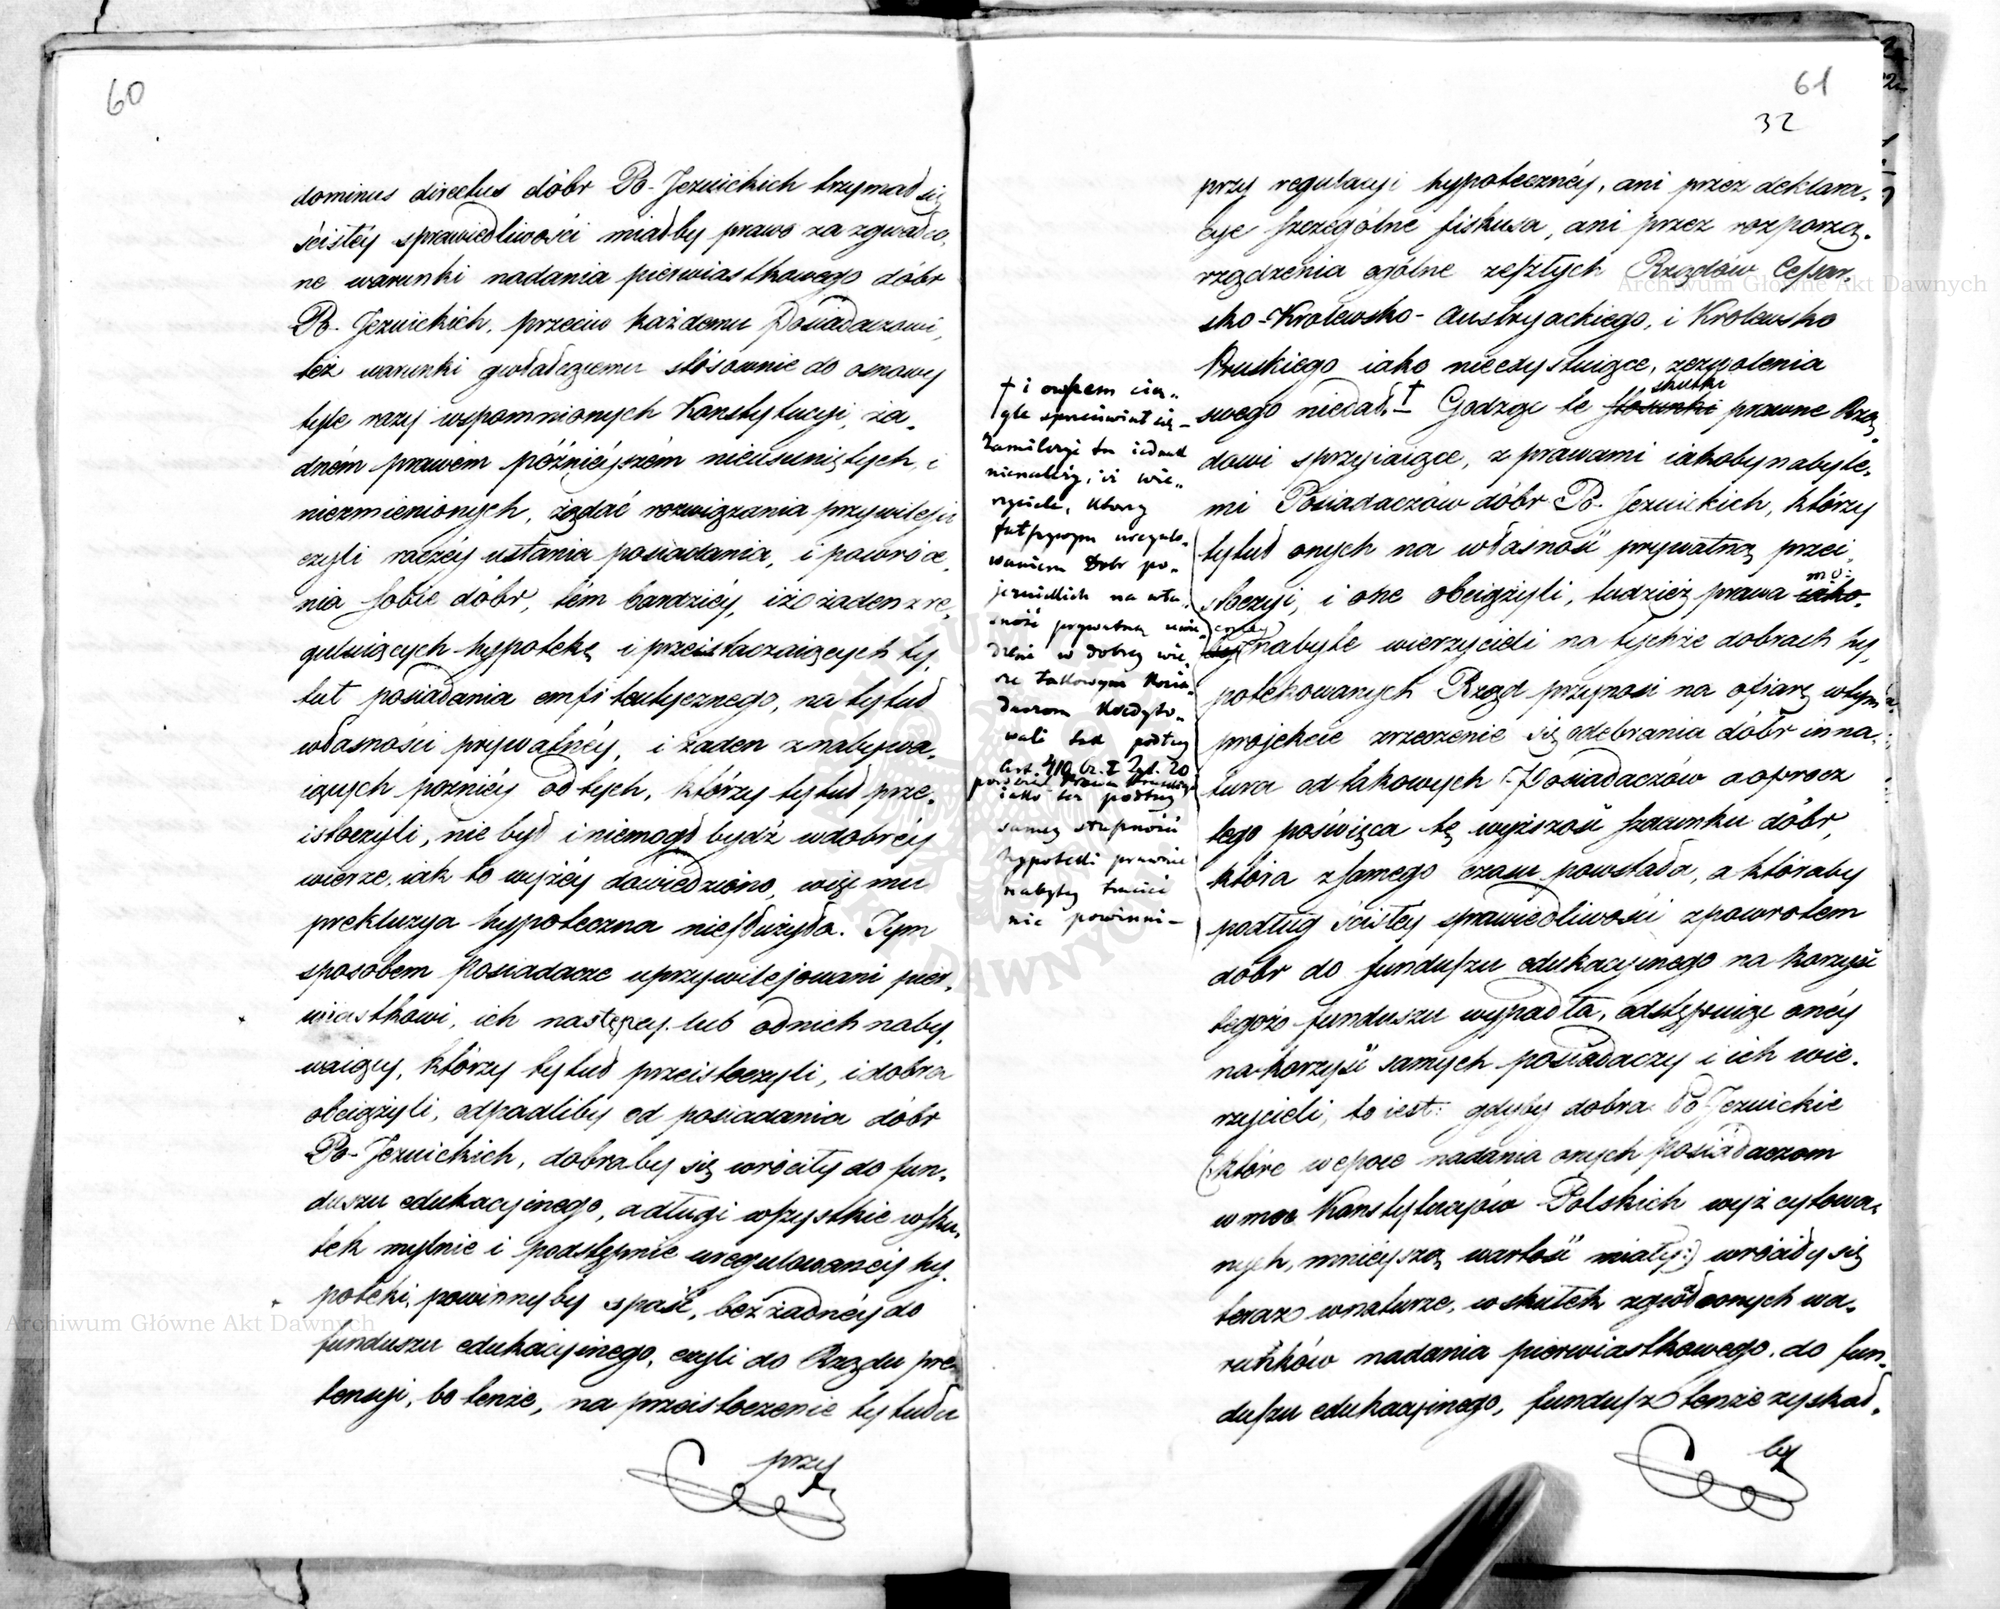 60
dominus directus dóbr Po-Jezuickich trzymał się
ścisłéy sprawiedliwości miałby prawo za zgwałco,
ne warunki nadania pierwiastkowego dóbr
Po-Jezuickich, przeciw każdemu Posiadaczowi,
też warunki gwałcącemu stósownie do osnowy
tyle razy wspomnionych Konstytucyi, ża,
dném prawem późnieyszém nieusuniętych, i
niezmienionych, żądać rozwiązania przywileju
czyli raczéy ustania posiadania, i powróce,
nia sobie dóbr, tém bardziéy, iż żaden z re,
guluiących hypotekę i przeistaczaiących ty,
tuł posiadania emfiteutycznego, na tytuł
własności prywatnéy, i żaden z nabywa,
iących poźniéy od tych, którzy tytuł prze,
istoczyli, nie był i niemógł bydź w dobréy
wierze, iak to wyżéy dowiedziono, więc mu
prekluzya hypoteczna niesłużyła. Tym
sposobem posiadacze uprzywilejowani pier,
wiastkowi, ich następcy lub od nich naby,
waiący, którzy tytuł przeistoczyli, i dobra
obciążyli, odpadliby od posiadania dóbr
Po-Jezuickich, dobra by się wróciły do fun,
duszu edukacyinego, a długi wszystkie wsku,
tek mylnie i podstępnie uregulowanéy hy,
poteki, powinnyby spaść, bez żadnéy do
funduszu edukacyinego, czyli do Rządu pre,
tensyi, bo tenże, na przeistoczenie tytułu
przy
61
32
przy regulacyi hypotecznéy, ani przez deklara,
cye szczególne fiskusa, ani przez rozporzą,
rządzenia ogólne zeszłych Rządów Cesar,
sko-Krolewsko-Austryackiego, i Krolewsko
Pruskiego iako nieedystuiące, zezwolenia
swego niedał. † Godząc te stosunki skutki prawne Rzą,
dowi sprzyiaiące, z prawami iakoby nabyte,
mi Posiadaczów dóbr Po-Jezuickich, którzy
tytuł onych na własność prywatną przei,
stoczyi, i one obciążyli, tudzież prawa iako,
by nabyte wierzycieli na tychże dobrach hy,
potekowanych Rząd przynosi na ofiarę w tym
projekcie zrzeczenie się odebrania dóbr in na,
tura od takowych Posiadaczów a oprócz
tego poświęca tę wyższość szacunku dóbr,
która z samego czasu powstała, a któraby
podług ścisłey sprawiedliwości z powrotem
dóbr do funduszu edukacyinego na korzyść
tegoż funduszu wypadła, odstępuiąc onéy
na korzyść samych posiadaczy i ich wie,
rzycieli, to iest: gdyby dobra Po-Jezuickie
(które w epoce nadania onych posiadaczom
w moc Konstytucyiów Polskich wyż cytowa,
nych, mnieyszą wartość miały:) wróciły się
teraz w naturze, w skutek zgwałconych wa,
runków nadania pierwiastkowego, do fun,
duszu edukacyinego, fundusz tenże zyskał,
by
† i owszem cią,,
gle sprzeciwiał się –
Zamilczyć tu iednak
nienależy, iż wie,,
rzyciele, którzy
fałszywym uregulo,
waniem Dobr po,,
jezuickich na wła,
sność prywatną uwie,
dzeni w dobrey wie,
rze takowym Posia,
daczom kredyto,,
wali tak podług
Art. 410. Cz. I Tyt. 20
iako też podług
samey słuszności
hypoteki prawnie
nabytey tracić
nie powinni –